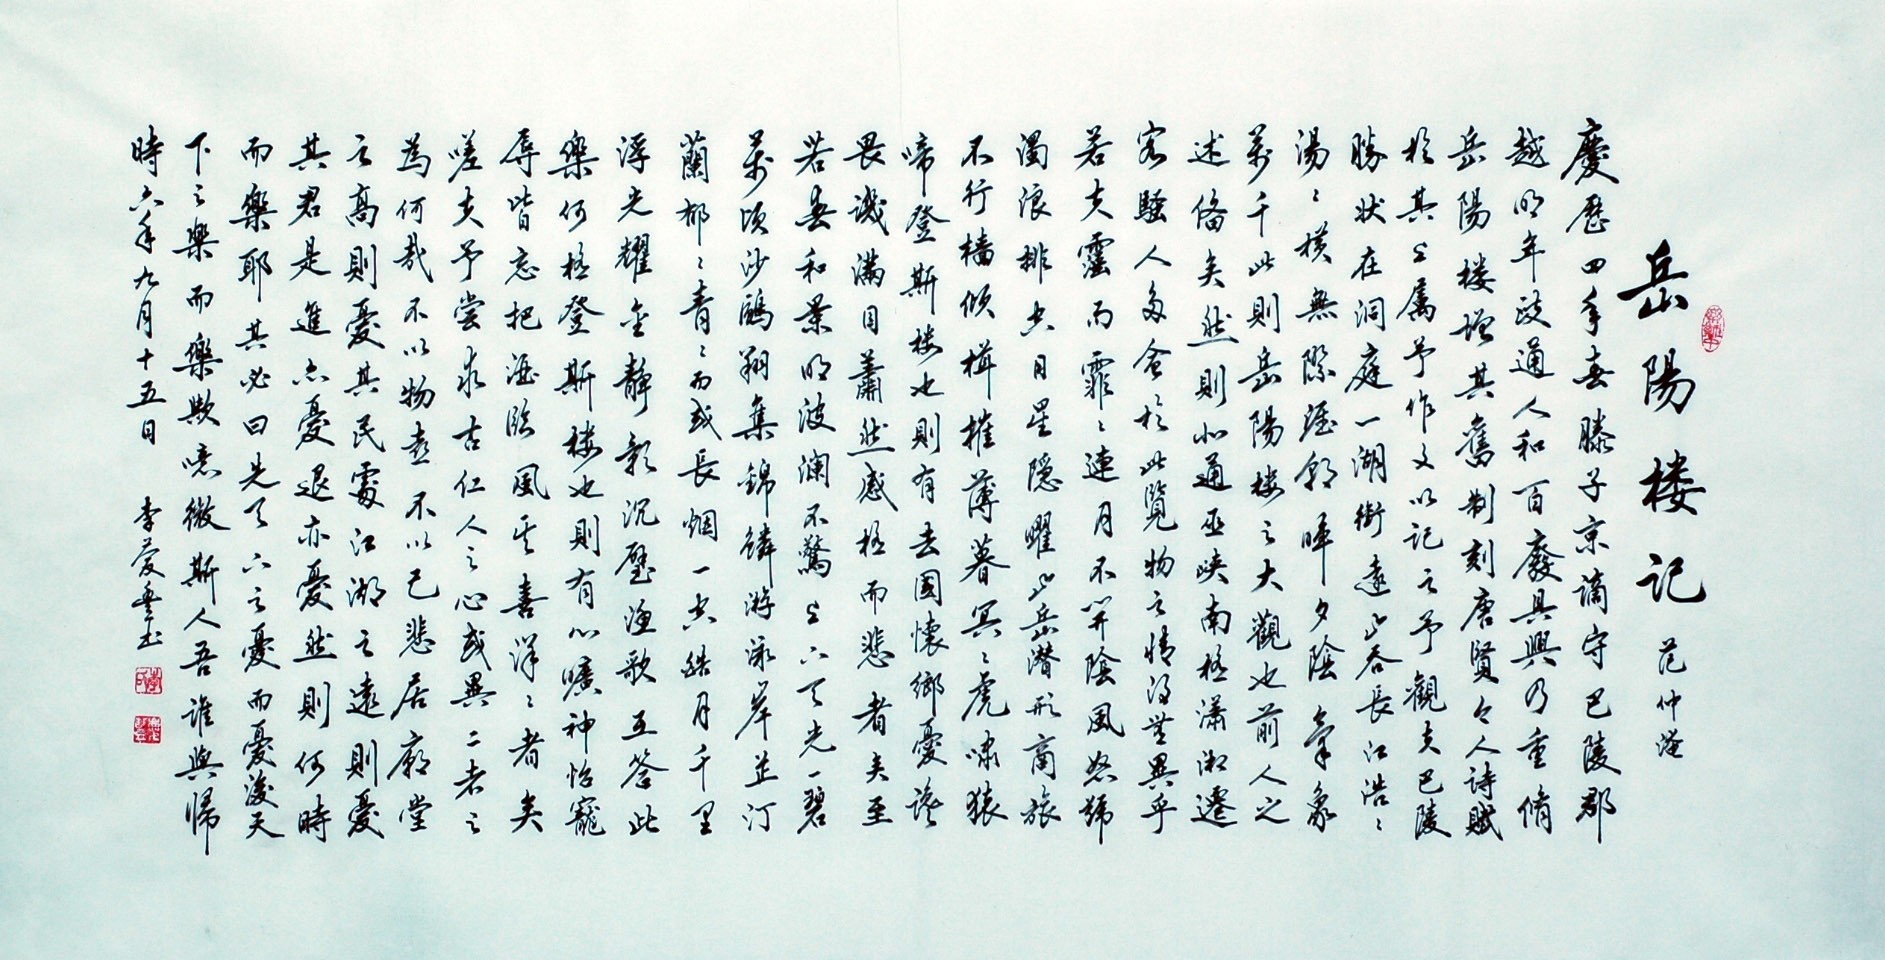 岳陽楼记 范仲淹
慶歷四年春滕子京谪守巴陵郡
越明年政通人和百廢具興乃重脩
岳陽楼增其舊制刻唐賢今人詩賦
於其上属予作文以记之予觀夫巴陵
勝状在洞庭一湖銜遠山吞长江浩々
湯々横無際涯朝暉夕陰氣象
萬千此則岳陽楼之大觀也前人之
述俻矣然則北通巫峡南极瀟湘遷
客騷人多会於此覽物之情得無異乎
若夫霪雨霏々連月不開陰風怒號
濁浪排空日星隱曜山岳潜形商旅
不行檣倾楫摧薄暮冥々虎啸猿
啼登斯楼也則有去國懷鄉憂讒
畏譏滿目蕭然感极而悲者矣至
若春和景明波澜不驚上下天光一碧
萬顷沙鷗翔集錦鳞游泳岸芷汀
蘭郁々青々而或长烟一空皓月千里
浮光耀金静影沉璧渔歌互答此
樂何极登斯楼也則有心曠神怡寵
辱皆忘把酒临風其喜洋々者矣
嗟夫予尝求古仁人之心或異二者之
為何哉不以物喜不以己悲居廟堂
之高則憂其民處江湖之遠則憂
其君是進亦憂退亦憂然則何時
而樂耶其必曰先天下之憂而憂後天
下之樂而樂歟噫微斯人吾谁與歸
時六年九月十五日 李